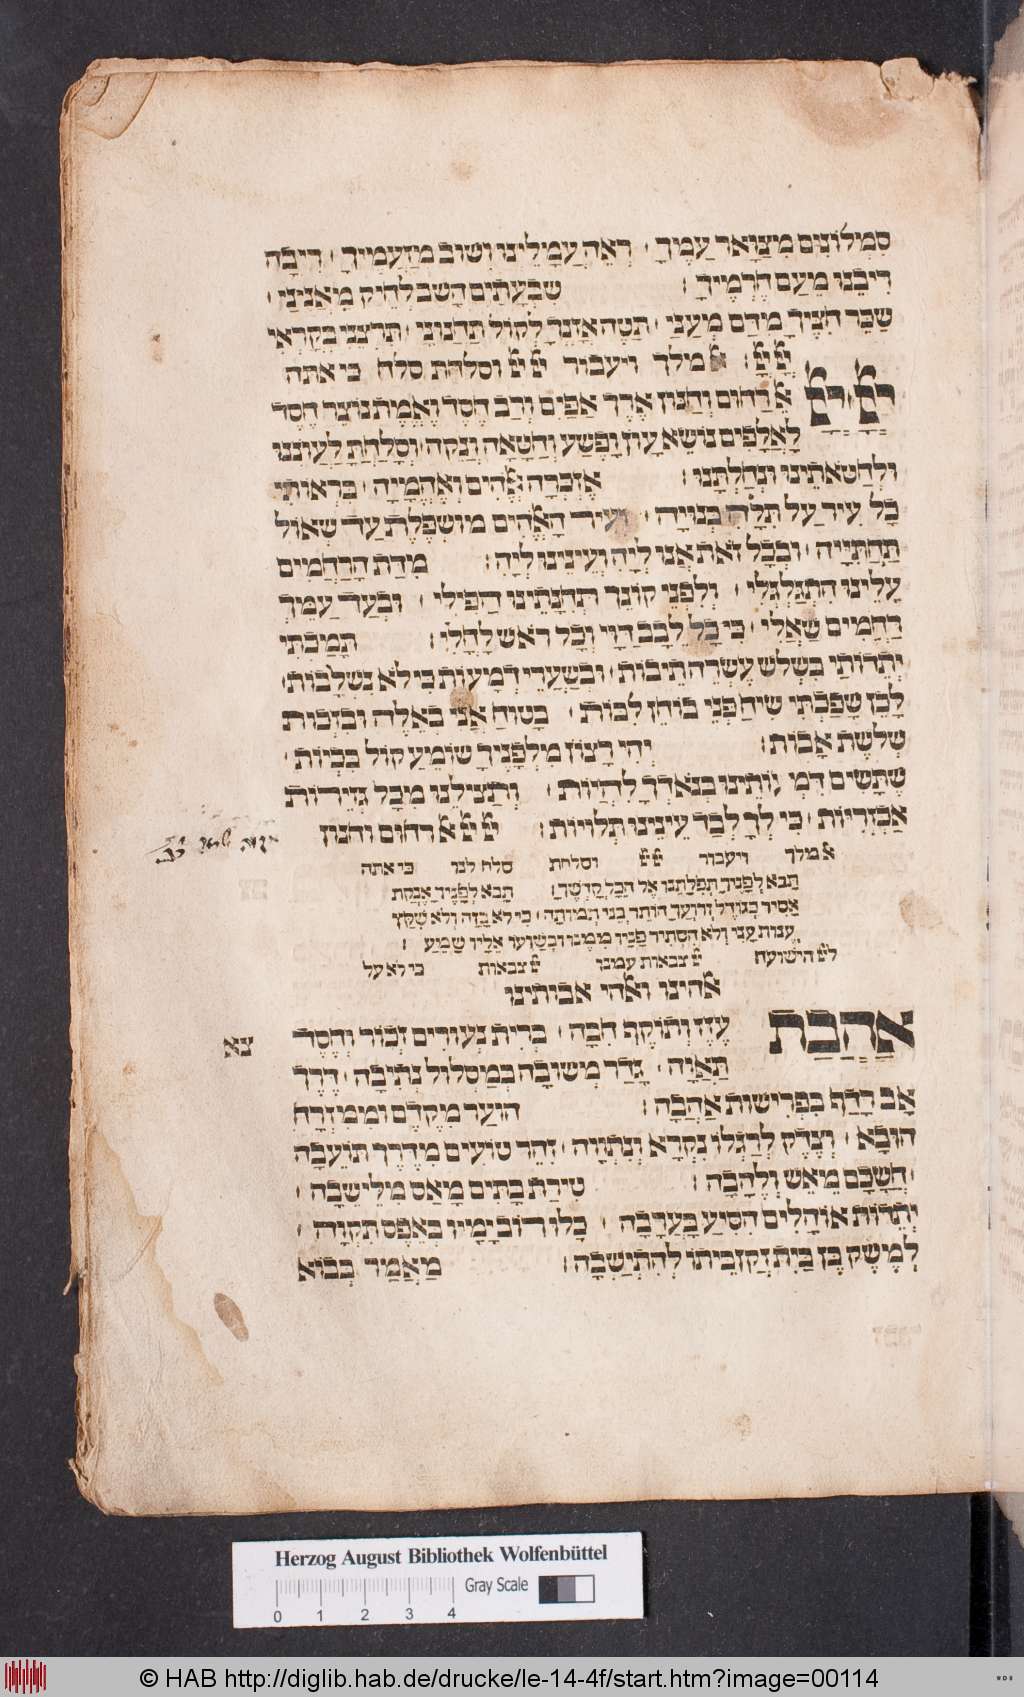 סמלונים מצואר עמיך · ראה עמלינו ושוב מזעמיך · דיבה
דיבנו מעם חרמיך : שבעתים השב לחיק מאניני ·
שכר חציך מדם מעני · תטה אזנך לקול תחנוני · תרצני בקראי
יי יי : אל מלך ויעבור יי יי וסלחת סלח כי אתה
יי יי
אל רחום וחנון ארך אפים ורב חסד ואמת נוצר חסד
לאלפים נושא עון ופשע וחטאה ונקה · וסלחת לעוננו
ולחטאתינו ונחלתנו : אזכרה אלהים ואהמיה · בראותי
כל עיר על תלה בנויה · ועיר האלהים מושפלת עד שאול
תחתייה · ובכל זאת אנו ליה ועינינו ליה : מדת הרחמים
עלינו התגלגלי · ולפני קונך תחנתינו הפילי · ובעד עמך
רחמים שאלי · כי כל לבב דוי וכל ראש לחלי : תמכתי
יתדותי בשלש עשרה תיבות · ובשערי דמעות כי לא נשלבות ·
לכן שפכתי שיח פני בוחן לבות · בטוח אני באלה ובזכות
שלשת אבות : יהי רצון מלפניך שומע קול בכיות ·
שתשים דמעותינו בנאדך להיות · ותצילנו מכל גזירות
אכזריות · כי לך לבד עינינו תלויות : יי יי אל רחום וחנון
אל מלך ויעבור יי יי וסלחת סלח לנו כי אתה
תבא לפניך תפלתנו אל היכל קדשך : תבא לפניך אנקת
אסיר כגודל זרועך הותר בני תמותה · כי לא בזה ולא שקץ
ענות עני ולא הסתיר פניו ממנו ובשועו אליו שמע :
ליי הישועה יי צבאות עמנו יי צבאות כי לא על
אלהינו ואלהי אבותינו
צא
אהבת
עזז ותוקף חבה · ברית נעורים זכור וחסד
תאוה · גדר משובה במסלול נתיבה · דרך
אב רדף כפרישות אהבה : הוער מקדם וממזרח
הובא · וצדק לרגלו נקרא ונתווה · זהר טועים מדרך תועבה
· חשכם מאש ולהבה : טירת בתים מאס מלישבה ·
יתדות אוהלים הסיע בערבה · כלו רוב ימיו באפס תקוה ·
למשק בן בית זקן ביתו להתישבה : מאמר בבוא
Herzog August Bibliothek Wolfenbüttel
Gray Scale
0 1 2 3 4
© HAB http://diglib.hab.de/drucke/le-14-4f/start.htm?image=00114